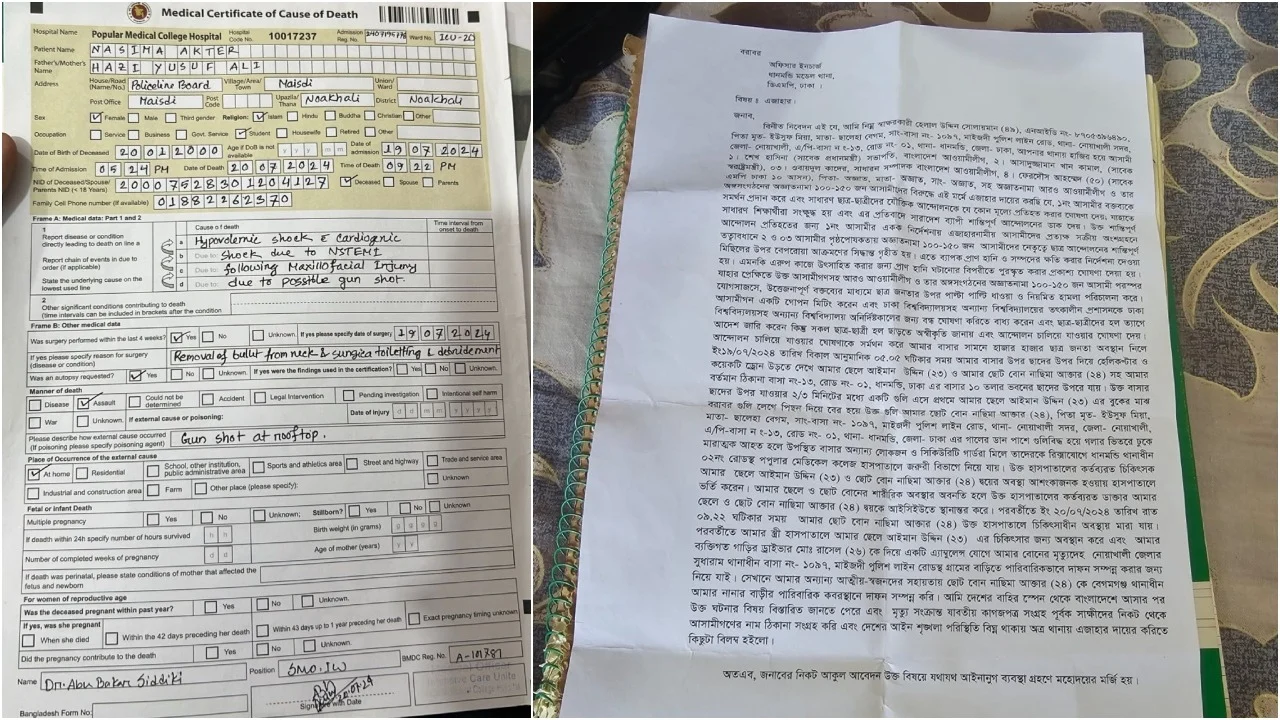 Medical Certificate of Cause of Death
Hospital Name Popular Medical College Hospital Hospital Code No. 10017237 Admission Reg. No. Ward No. ICU-20
Patient Name NASIMA AKTER
Father's/Mother's Name HAZI YUSUF ALI
Address House/Road (Name/No.) Policeline Board Village/Area/Town Maisdi Union/Ward
Post Office Maisdi Post Code Upazila/Thana Noakhali District Noakhali
Sex Female Male Third gender Religion: Islam Hindu Buddha Christian Other
Occupation Service Business Govt. Service Student Housewife Retired Other
Date of Birth of Deceased 20012000 Age if DoB is not available y y y Date of admission 19072024
Time of Admission 0524 PM Date of Death 20072024 Time of Death 0922 PM
NID of Deceased/Spouse/Parents NID (< 18 Years) 20007528301204127 Deceased Spouse Parents
Family Cell Phone number (if Available) 01882262370
Frame A: Medical data: Part 1 and 2
Cause of death
Time interval from onset to death
1
Report disease or condition directly leading to death on line a
Report chain of events in due to order (if applicable)
State the underlying cause on the lowest used line
a Hypovolemic shock & cardiognic
b Due to: shock due to NSTEMI
c Due to: following Maxillofacial Injury
d Due to: due to possible gun shot.
2
Other significant conditions contributing to death
(time intervals can be included in brackets after the condition
Frame B: Other medical data
Was surgery performed within the last 4 weeks? Yes No Unknown If yes please specify date of surgery 19072024
If yes please specify reason for surgery (disease or condition) Removal of bulut from neck & surgica toiletting & debridement
Was an autopsy requested? Yes No Unknown. If yes were the findings used in the certification? Yes No Unknown.
Manner of death
Disease Assault Could not be determined Accident Legal Intervention Pending investigation Intentional self harm
War Unknown. If external cause or poisoning: Date of injury d d m m y y y y
Please describe how external cause occurred (If poisoning please specify poisoning agent) Gun shot at rooftop.
Place of Occurrence of the external cause
At home Residential School, other institution, public administrative area Sports and athletics area Street and highway Trade and service area
Industrial and construction area Farm Other place (please specify): Unknown
Fetal or infant Death
Multiple pregnancy Yes No Unknown; Stillborn? Yes No Unknown
If death within 24h specify number of hours survived h h Birth weight (in grams) g g g g
Number of completed weeks of pregnancy d d Age of mother (years) y y
If death was perinatal, please state conditions of mother that affected the fetus and newborn
For women of reproductive age
Was the deceased pregnant within past year? Yes No Unknown.
If yes, was she pregnant
When she died Within the 42 days preceding her death Within 43 days up to 1 year preceding her death Exact pregnancy timing unknown
Did the pregnancy contribute to the death Yes No Unknown.
Name Dr. Abu Bakar Siddiki Position SMO, ICU BMDC Reg. No. A-101781
Signature with Date
Bangladesh Form No:
বরাবর
অফিসার ইনচার্জ
ধানমন্ডি মডেল থানা,
ডিএমপি, ঢাকা ।
বিষয়ঃ এজাহার।
জনাব,
বিনীত নিবেদন এই যে, আমি নিম্ন স্বাক্ষরকারী হেলাল উদ্দিন সোলায়মান (৪৯), এনআইডি নং- ৮৭০৫৩৯৬৪৯০,
পিতা মৃত- ইউসুফ মিয়া, মাতা- ছালেহা বেগম, সাং-বাসা নং- ১০৯৭, মাইজদী পুলিশ লাইন রোড, থানা- নোয়াখালী সদর,
জেলা- নোয়াখালী, এ/পি-বাসা নং-১৩, রোড নং- ০১, থানা- ধানমন্ডি, জেলা- ঢাকা, আপনার থানায় হাজির হয়ে আসামী
১। শেখ হাসিনা (সাবেক প্রধানমন্ত্রী) সভাপতি, বাংলাদেশ আওয়ামীলীগ, ২। আসাদুজ্জামান খান কামাল, (সাবেক
স্বরাষ্ট্রমন্ত্রী), ০৩। ওবায়দুল কাদের, সাধারন সম্পাদক বাংলাদেশ আওয়ামীলীগ, ৪। ফেরদৌস আহম্মেদ (৫০) (সাবেক
এমপি ঢাকা ১০ আসন), পিতা- অজ্ঞাত, মাতা- অজ্ঞাত, সাং- অজ্ঞাত, সহ অজ্ঞাতনামা আরও আওয়ামীলীগ ও তার
অঙ্গসংগঠনের অজ্ঞাতনামা ১০০-১৫০ জন আসামীদের বিরুদ্ধে এই মর্মে এজাহার দায়ের করছি যে, ১নং আসামীর বক্তব্যকে
সমর্থন প্রদান করে এবং সাধারণ ছাত্র-ছাত্রীদের যৌক্তিক আন্দোলনকে যে কোন মূল্যে প্রতিহত করার ঘোষণা দেয়। যাহাতে
সাধারণ শিক্ষার্থীরা সংক্ষুব্ধ হয় এবং এর প্রতিবাদে সারাদেশ ব্যাপী শান্তিপূর্ণ আন্দোলনের ডাক দেয়। উক্ত শান্তিপূর্ণ
আন্দোলন প্রতিহতের জন্য ১নং আসামীর একক নির্দেশনায় এজাহারনামীয় আসামীদের প্রত্যক্ষ সক্রীয় অংশগ্রহনে
তত্বাবধানে ২ ও ০৩ আসামীর পৃষ্ঠপোষকতায় অজ্ঞাতনামা ১০০-১৫০ জন আসামীদের নেতৃত্বে ছাত্র আন্দোলনের শান্তিপূর্ণ
মিছিলের উপর বেপরোয়া আক্রমণের সিদ্ধান্ত গৃহীত হয়। এতে ব্যাপক প্রাণ হানি ও সম্পদের ক্ষতি করার নির্দেশনা দেওয়া
হয়। এমনকি এরুপ কাজে উৎসাহিত করার জন্য প্রাণ হানি ঘটানোর বিপরীতে পুরস্কৃত করার প্রকাশ্য ঘোষণা দেয়া হয়।
যাহার প্রেক্ষিতে উক্ত আসামীগণসহ আরও আওয়ামীলীগ ও তার অঙ্গসংগঠনের অজ্ঞাতনামা ১০০-১৫০ জন আসামী পরস্পর
যোগসাজসে, উত্তেজনাপূর্ণ বক্তব্যের মাধ্যমে ছাত্র জনতার উপর পাল্টা পাল্টি ধাওয়া ও নিয়মিত হামলা পরিচালনা করে।
আসামীগন একটি গোপন মিটিং করেন এবং ঢাকা বিশ্ববিদ্যালয়সহ অন্যান্য বিশ্ববিদ্যালয়ের তৎকালীন প্রশাসনকে ঢাকা
বিশ্ববিদ্যালয়সহ অন্যান্য বিশ্ববিদ্যালয় অনির্দিষ্টকালের জন্য বন্ধ ঘোষণা করিতে বাধ্য করেন এবং ছাত্র-ছাত্রীদের হল ত্যাগে
আদেশ জারি করেন কিন্তু সকল ছাত্র-ছাত্রী হল ছাড়তে অস্বীকৃতি জানায় এবং আন্দোলন চালিয়ে যাওয়ার ঘোষণা দেয়।
আন্দোলন চালিয়ে যাওয়ার ঘোষণাকে সমর্থন করে আমার বাসার সামনে হাজার হাজার ছাত্র জনতা অবস্থান নিলে
ইং১৯/০৭/২০২৪ তারিখ বিকাল অনুমানিক ০৫.০২ ঘটিকার সময় আমার বাসার উপর ছাদের উপর দিয়ে হেলিকপ্টার ও
কয়েকটি ড্রোন উড়তে দেখে আমার ছেলে আইমান উদ্দিন (২৩) ও আমার ছোট বোন নাছিমা আক্তার (২৪) সহ আমার
বর্তমান ঠিকানা বাসা নং-১৩, রোড নং- ০১, ধানমন্ডি, ঢাকা এর বাসার ১০ তলার ভবনের ছাদের উপরে যায়। উক্ত বাসার
ছাদের উপর যাওয়ার ২/৩ মিনিটের মধ্যে একটি গুলি এসে প্রথমে আমার ছেলে আইমান উদ্দিন (২৩) এর বুকের মাঝ
বরাবর গুলি লেগে পিছন দিয়ে বের হয়ে উক্ত গুলি আমার ছোট বোন নাছিমা আক্তার (২৪), পিতা মৃত- ইউসুফ মিয়া,
মাতা- ছালেহা বেগম, সাং-বাসা নং- ১০৯৭, মাইজদী পুলিশ লাইন রোড, থানা- নোয়াখালী সদর, জেলা- নোয়াখালী,
এ/পি-বাসা নং-১৩, রোড নং- ০১, থানা- ধানমন্ডি, জেলা- ঢাকা এর গালের ডান পাশে গুলিবিদ্ধ হয়ে গলার ভিতরে ঢুকে
মারাত্মক আহত হলে উপস্থিত বাসার অন্যান্য লোকজন ও সিকিউরিটি গার্ডরা মিলে তাদেরকে রিক্সাযোগে ধানমন্ডি থানাধীন
০২নং রোডস্থ পপুলার মেডিকেল কলেজ হাসপাতালে জরুরী বিভাগে নিয়ে যায়। উক্ত হাসপাতালের কর্তব্যরত চিকিৎসক
আমার ছেলে আইমান উদ্দিন (২৩) ও ছোট বোন নাছিমা আক্তার (২৪) দ্বয়ের অবস্থা আশংকাজনক হওয়ায় হাসপাতালে
ভর্তি করেন। আমার ছেলে ও ছোট বোনের শারীরিক অবস্থার অবনতি হলে উক্ত হাসপাতালের কর্তব্যরত ডাক্তার আমার
ছেলে ও ছোট বোন নাছিমা আক্তার (২৪) দ্বয়কে আইসিইউতে স্থানান্তর করে। পরবর্তীতে ইং ২০/০৭/২০২৪ তারিখ রাত
০৯.২২ ঘটিকার সময় আমার ছোট বোন নাছিমা আক্তার (২৪) উক্ত হাসপাতালে চিকিৎসাধীন অবস্থায় মারা যায়।
পরবর্তীতে আমার স্ত্রী হাসপাতালে আমার ছেলে আইমান উদ্দিন (২৩) এর চিকিৎসার জন্য অবস্থান করে এবং আমার
ব্যক্তিগত গাড়ির ড্রাইভার মোঃ রাসেল (২৬) কে দিয়ে একটি এ্যাম্বুলেন্স যোগে আমার বোনের মৃতদেহ নোয়াখালী জেলার
সুধারাম থানাধীন বাসা নং- ১০৯৭, মাইজদী পুলিশ লাইন রোডস্থ গ্রামের বাড়িতে পারিবারিকভাবে দাফন সম্পন্ন করার জন্য
নিয়ে যাই। সেখানে আমার অন্যান্য আত্মীয়-স্বজনদের সহায়তায় ছোট বোন নাছিমা আক্তার (২৪) কে বেগমগঞ্জ থানাধীন
আমার নানার বাড়ীর পারিবারিক কবরস্থানে দাফন সম্পন্ন করি। আমি দেশের বাহির স্পেন থেকে বাংলাদেশে আসার পর
উক্ত ঘটনার বিষয় বিস্তারিত জানতে পেরে এবং মৃত্যু সংক্রান্ত যাবতীয় কাগজপত্র সংগ্রহ পূর্বক সাক্ষীদের নিকট থেকে
আসামীগণের নাম ঠিকানা সংগ্রহ করি এবং দেশের আইন শৃঙ্খলা পরিস্থিতি বিঘ্ন থাকায় অত্র থানায় এজাহার দায়ের করিতে
কিছুটা বিলম্ব হইলো।
অতএব, জনাবের নিকট আকুল আবেদন উক্ত বিষয়ে যথাযথ আইনানুগ ব্যবস্থা গ্রহণে মহোদয়ের মর্জি হয়।